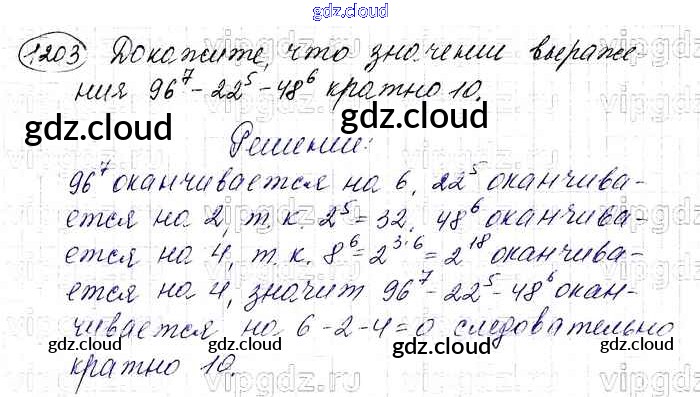 gdz.cloud
1203 Докажите, что значении выраже
ния 96⁷ - 22⁵ - 48⁶ кратно 10.
gdz.cloud gdz.cloud
Решении:
96⁷ оканчивается на 6, 22⁵ оканчива-
ется на 2, т.к. 2⁵ = 32, 48⁶ оканчива-
ется на 4, т.к. 8⁶ = 2³·⁶ = 2¹⁸ оканчива-
ется на 4, значит 96⁷ - 22⁵ - 48⁶ окан-
чивается на 6 - 2 - 4 = 0 следовательно
gdz.cloud gdz.cloud gdz.cloud
кратно 10.
vipgdz.ru